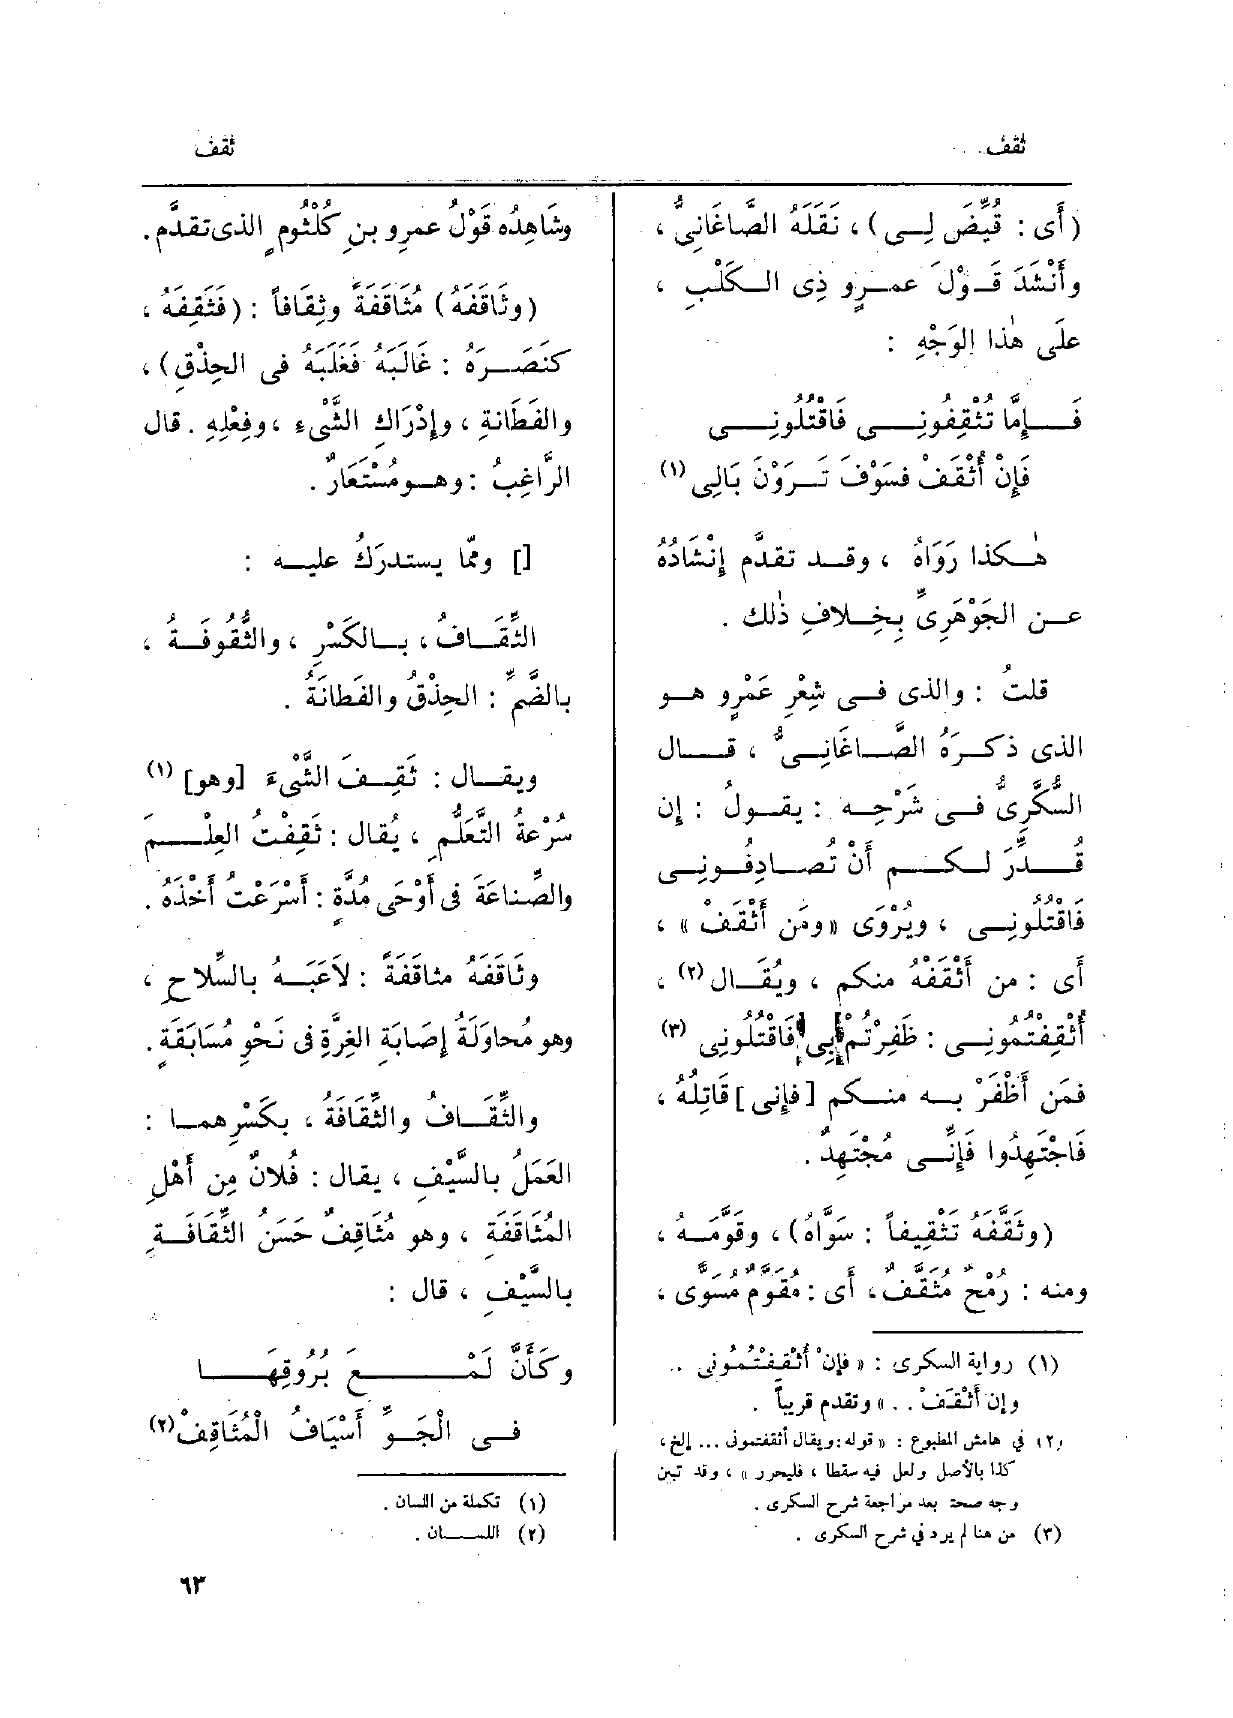 ثقف
ثقف
(أَى : قُيِّضَ لِى) ، نَقَلَهُ الصَّاغَانِىُّ ،
وأَنْشَدَ قَوْلَ عمرو ذِى الكَلْبِ ،
علَى هٰذا الوَجْهِ :
فَإِمَّا تُثْقِفُونِى فَاقْتُلُونِى
فَإِنْ أُثْقَفْ فسَوْفَ تَرَوْنَ بَالِى (١)
هٰكذا رَوَاهُ ، وقد تقدَّم إِنْشَادُهُ
عن الجَوْهَرِىِّ بِخِلافِ ذٰلك .
قلتُ : والذى فى شِعْرِ عَمْرٍو هو
الذى ذكَرَهُ الصَّاغَانِىُّ ، قال
السُّكَّرِىُّ فى شَرْحِه : يقولُ : إن
قُدِّرَ لكم أَنْ تُصادِفُونِى
فَاقْتُلُونِى ، ويُرْوَى «ومَن أَثْقَفْ » ،
أَى : من أَثْقَفْهُ منكم ، ويُقَال (٢) ،
أَثْقَفْتُمُونِى : ظَفِرْتُم بِى فَاقْتُلُونِى (٣)
فمَن أَظْفَرْ به منكم [فإِنى] قَاتِلُهُ ،
فَاجْتَهِدُوا فَإِنِّى مُجْتَهِدٌ .
(وثَقَّفَهُ تَثْقِيفاً : سَوَّاهُ) ، وقَوَّمَهُ ،
ومنه : رُمْحٌ مُثَقَّفٌ، أَى : مُقَوَّمٌ مُسَوًّى ،
(١) رواية السكرى : « فإن أثْقِفْتُمُونى ..
وإن أَثْقَفْ . . » وتقدم قريباً .
(٢) فى هامش المطبوع : « قوله : ويقال أثقفتمونى ... إلخ ،
كذا بالأصل ولعل فيه سقطا ، فليحرر » ، وقد تبين
وجه صحته بعد مراجعة شرح السكرى .
(٣) من هنا لم يرد فى شرح السكرى .
وشَاهِدُه قَوْلُ عمرِو بنِ كُلْثُومٍ الذى تقدَّم.
(وثَاقَفَهُ) مُثَاقَفَةً وثِقَافاً : (فَثَقِفَهُ ،
كنَصَرَهُ : غَالَبَهُ فغَلَبَهُ فى الحِذْقِ) ،
والفَطَانةِ ، وإِدْرَاكِ الشَّىْءِ ، وفِعْلِهِ . قال
الرَّاغِبُ : وهو مُسْتَعَارٌ .
[] وممّا يستدرَكُ عليه :
الثِّقَافُ، بالكَسْرِ ، والثُّقُوفَةُ ،
بالضَّمِّ : الحِذْقُ والفَطَانَةُ .
ويقال : ثَقِفَ الشَّىْءَ [وهو] (١)
سُرْعَةُ التَّعَلُّمِ ، يُقال : ثَقِفْتُ العِلْمَ
والصِّناعَةَ فى أَوْحَى مُدَّةٍ : أَسْرَعْتُ أَخْذَهُ .
وثَاقَفَهُ مثاقَفَةً : لاَعَبَهُ بالسِّلاحِ ،
وهو مُحاوَلَةُ إِصَابَةِ الغِرَّةِ فى نَحْوِ مُسَابَقَةٍ.
والثِّقَافُ والثِّقَافَةُ ، بكَسْرِهما :
العَمَلُ بالسَّيْفِ ، يقال : فُلانٌ مِن أَهْلِ
المُثَاقَفَةِ ، وهو مُثَاقِفٌ حَسَنُ الثِّقَافَةِ
بالسَّيْفِ ، قال :
وكَأَنَّ لَمْعَ بُرُوقِهَا
فى الْجَوِّ أَسْيَافُ الْمُثَاقِفْ (٢)
(١) تكملة من اللسان .
(٢) اللسان .
٦٣